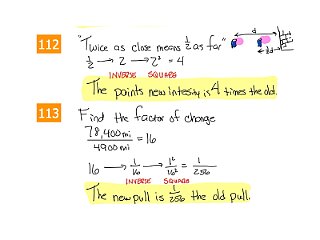 112
"Twice as close means 1/2 as far"
d
1/2 d
1/2 → 2 → 2² = 4
INVERSE SQUARE
The points new intesity is 4 times the old.
113
Find the factor of change
78,400 mi / 4900 mi = 16
16 → 1/16 → 1²/16² = 1/256
INVERSE SQUARE
The new pull is 1/256 the old pull.